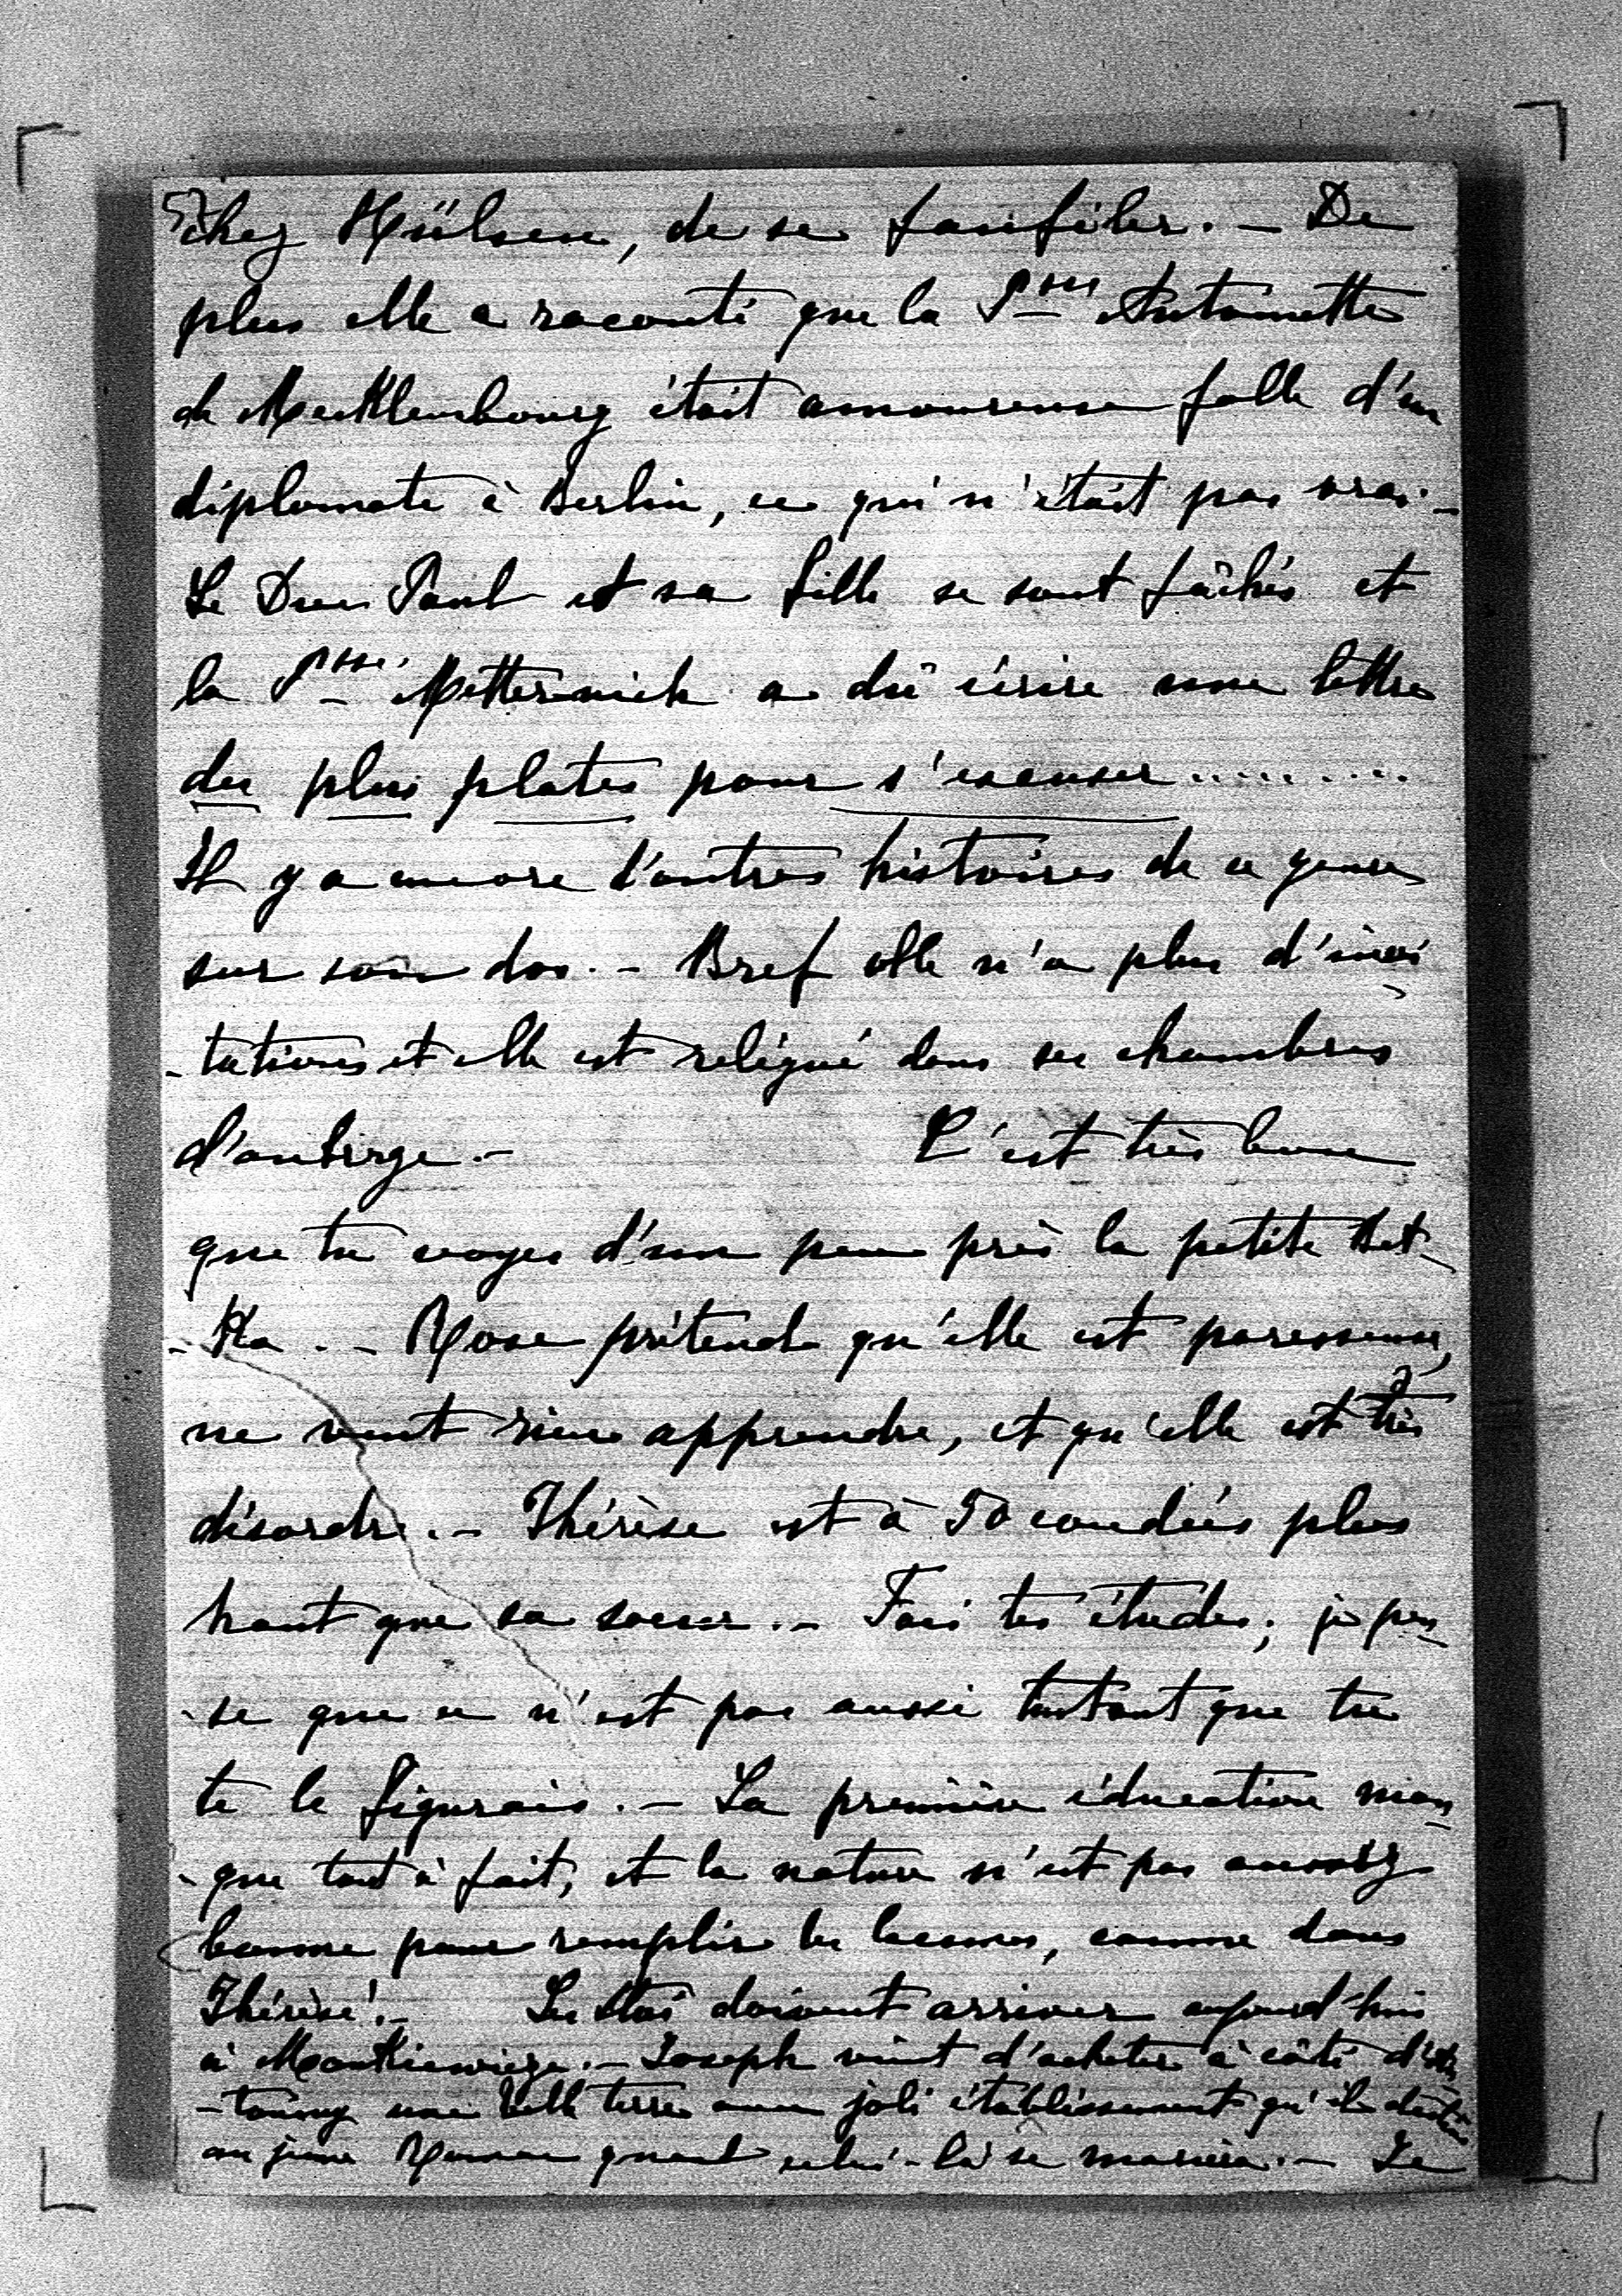 5) chez Hülsen, de se faufiler. – De
plus elle a raconté que la Psse Antoinette
de Mecklembourg était amoureuse folle d'un
diplomate à Berlin, ce qui n'était pas vrai. –
Le Duc Paul et sa fille se sont fâchés et
la Psse Metternich a dû écrire une lettre
des plus plates pour s'excuser.........
Il y a encore d'autres histoires de ce genre
sur son dos. – Bref elle n'a plus d'invi-
-tations et elle est relégué dans ses chambres
d'auberge. – C'est très bon
que tu voyes d'un peu près la petite Bet-
-Ka. – Rose prétend qu'elle est paresseuse,
ne veut rien apprendre, et qu'elle est très
désordre. – Thérèse est à 50 coudées plus
haut que sa soeur. – Fais tes études; je pen-
-se que ce n'est pas aussi tentant que tu
te le figurais. – La première éducation man-
-que tout à fait, et la nature n'est pas assez
bonne pour remplir les lacunes, comme dans
Thérèse! – Les doivent arriver aujourd'hui
à Mankiewicze. – Joseph vient d'acheter à côté d'
une belle terre avec joli établissement qu'il destine
au jeune Roman quand celui-là se mariera. – Le